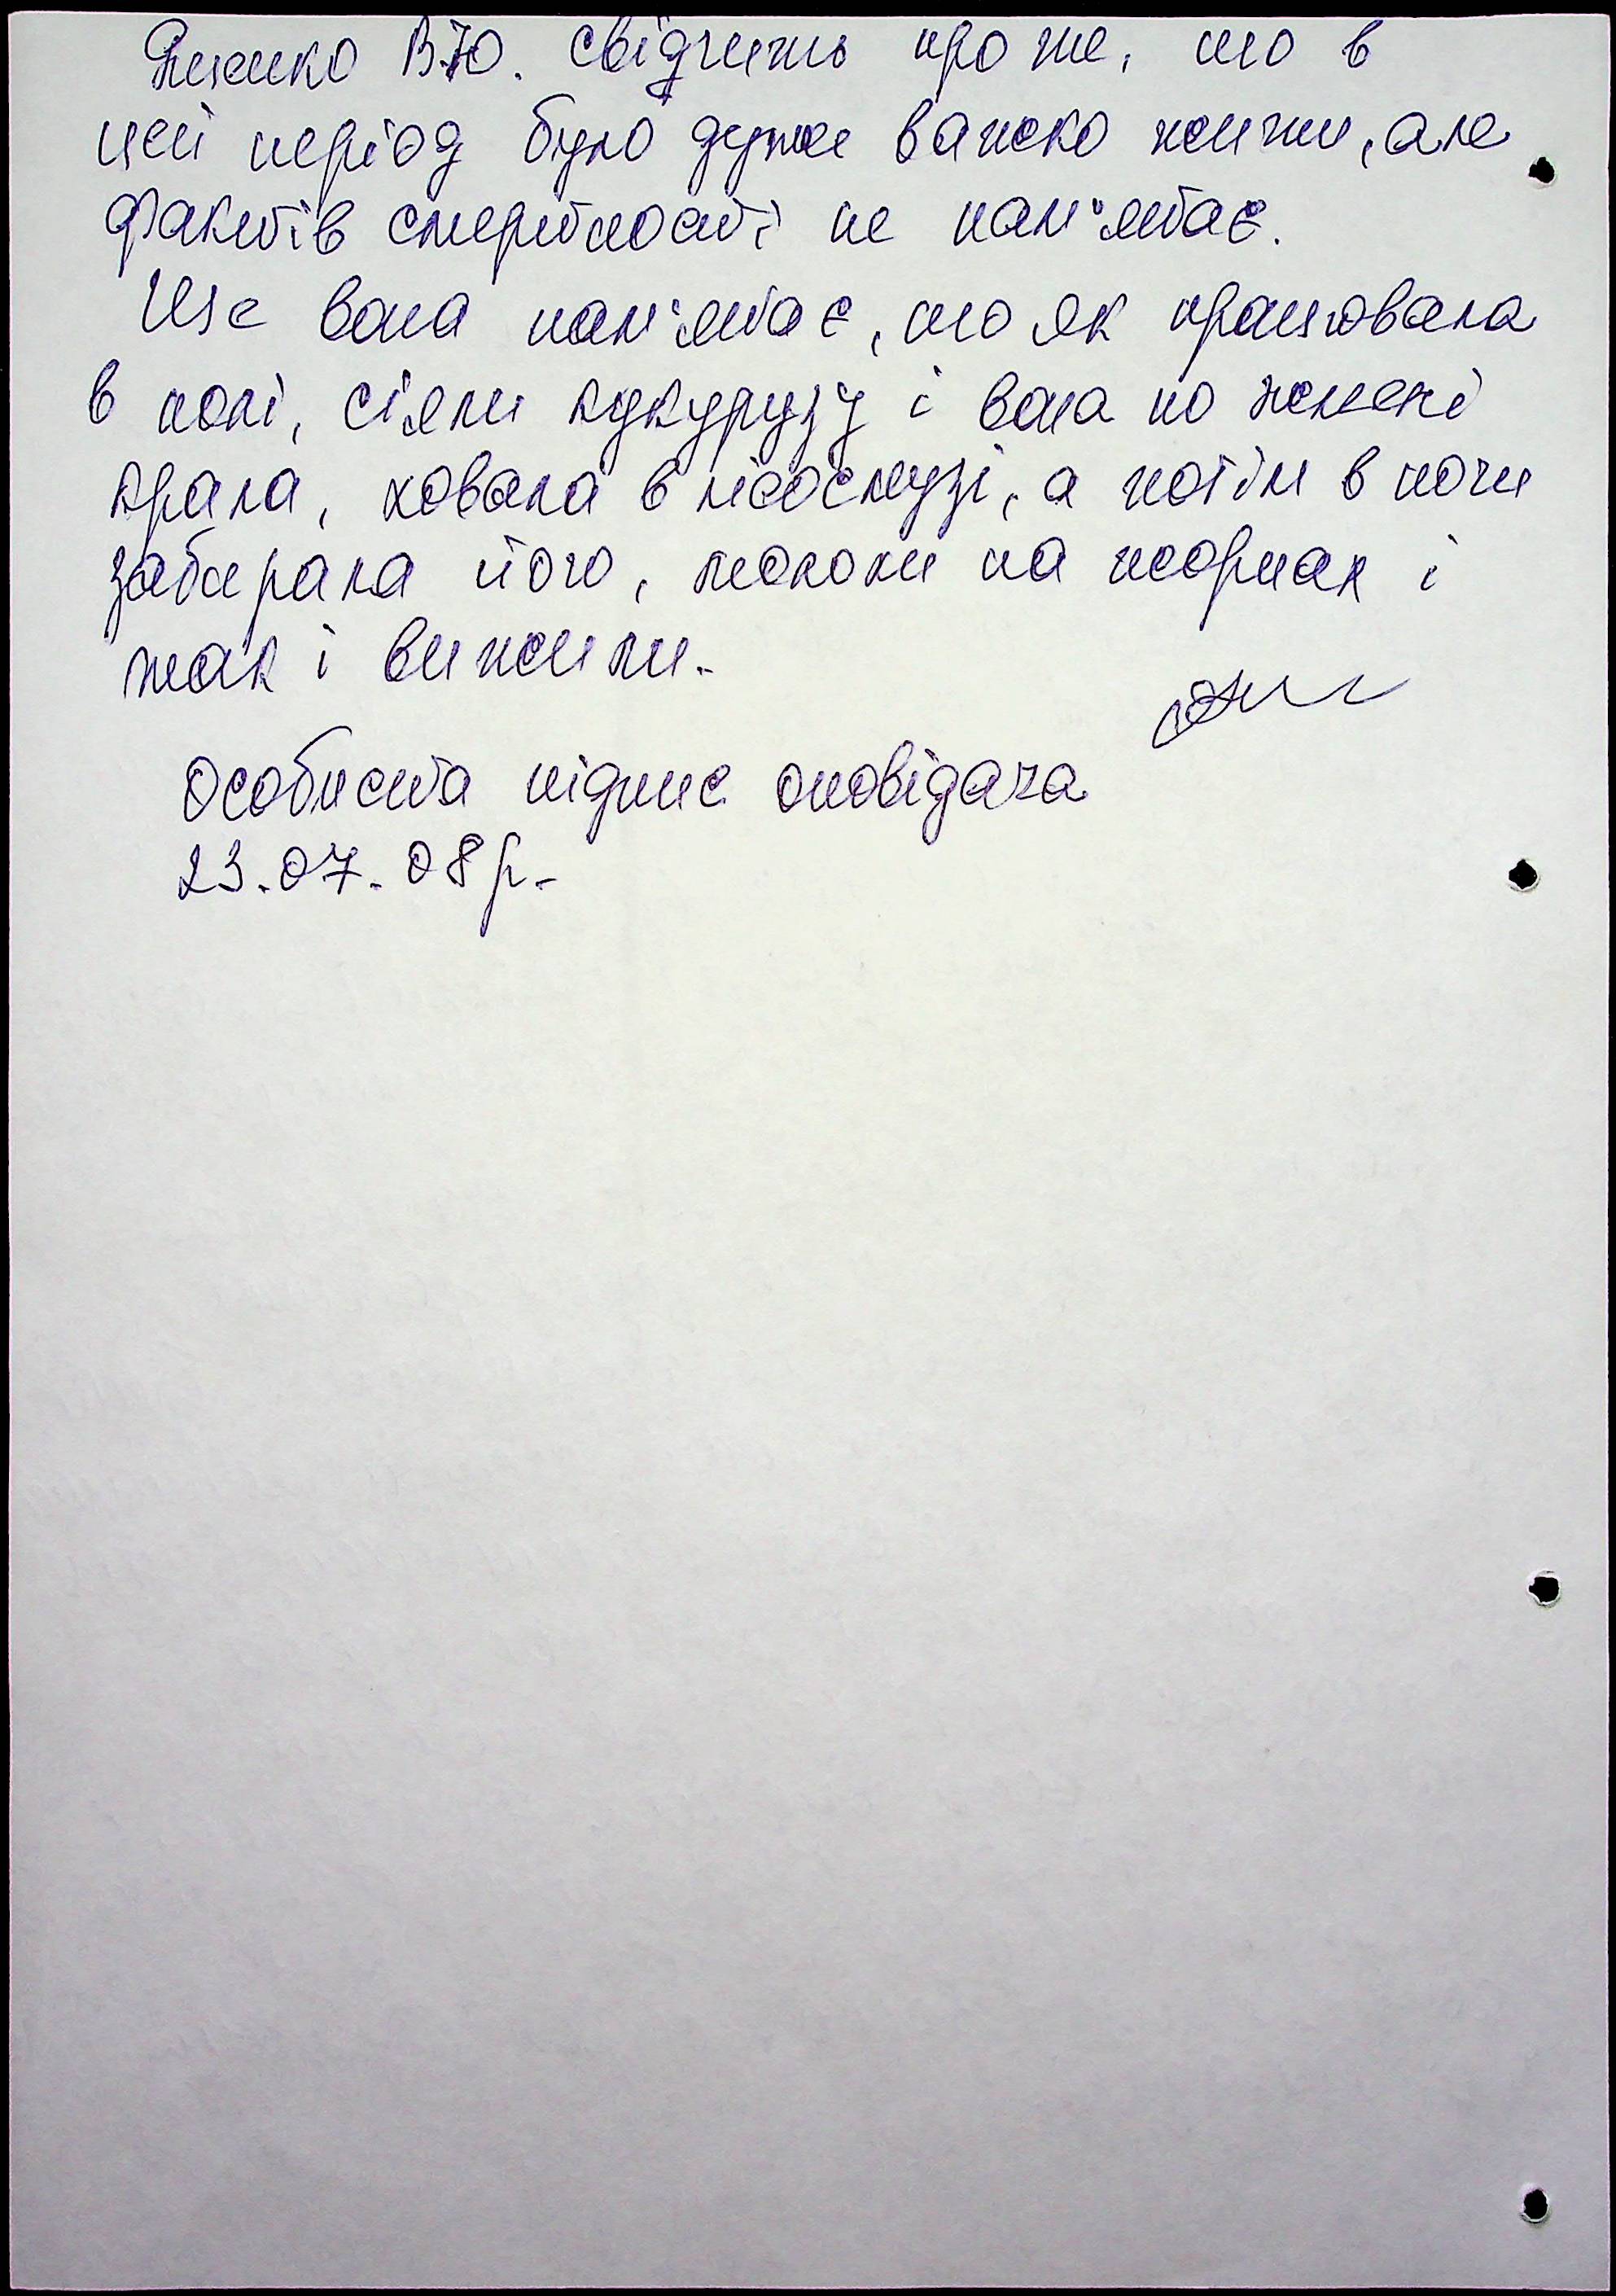 Яценко В.Ю. свідчить про те, що в
цей період було дуже важко жити, але
фактів смертності не пам'ятає.
Ще вона пам'ятає, що як працювала
в полі, сіяли кукурузу і вона по жмені
крала, ховала в лісосмузі, а потім в ночи
забирала його, товкли на жорнах і
так і вижили.
Особиста підпис оповідача
23.07.08р.